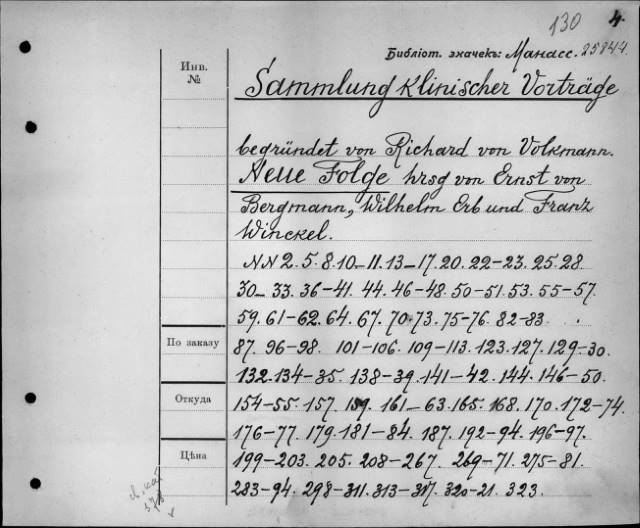 130 4.
Библіот. значекъ: Манасс. 25844.
Инв.
№
Sammlung Klinischer Vorträge
begründet von Richard von Volkmann.
Neue Folge hrsg von Ernst von
Bergmann, Wilhelm Erb und Franz
Winckel.
NN 2. 5. 8. 10-11. 13-17. 20. 22-23. 25. 28.
30-33. 36-41. 44. 46-48. 50-51. 53. 55-57.
59. 61-62. 64. 67. 70. 73. 75-76. 82-83.
По заказу
87. 96-98. 101-106. 109-113. 123. 127. 129-30.
132. 134-35. 138-39. 141-42. 144. 146-50.
Откуда
154-55. 157. 159. 161-63. 165. 168. 170. 172-74.
176-77. 179. 181-84. 187. 192-94. 196-97.
Цѣна
199-203. 205. 208-267. 269-71. 275-81.
283-94. 298-311. 313-317. 320-21. 323.